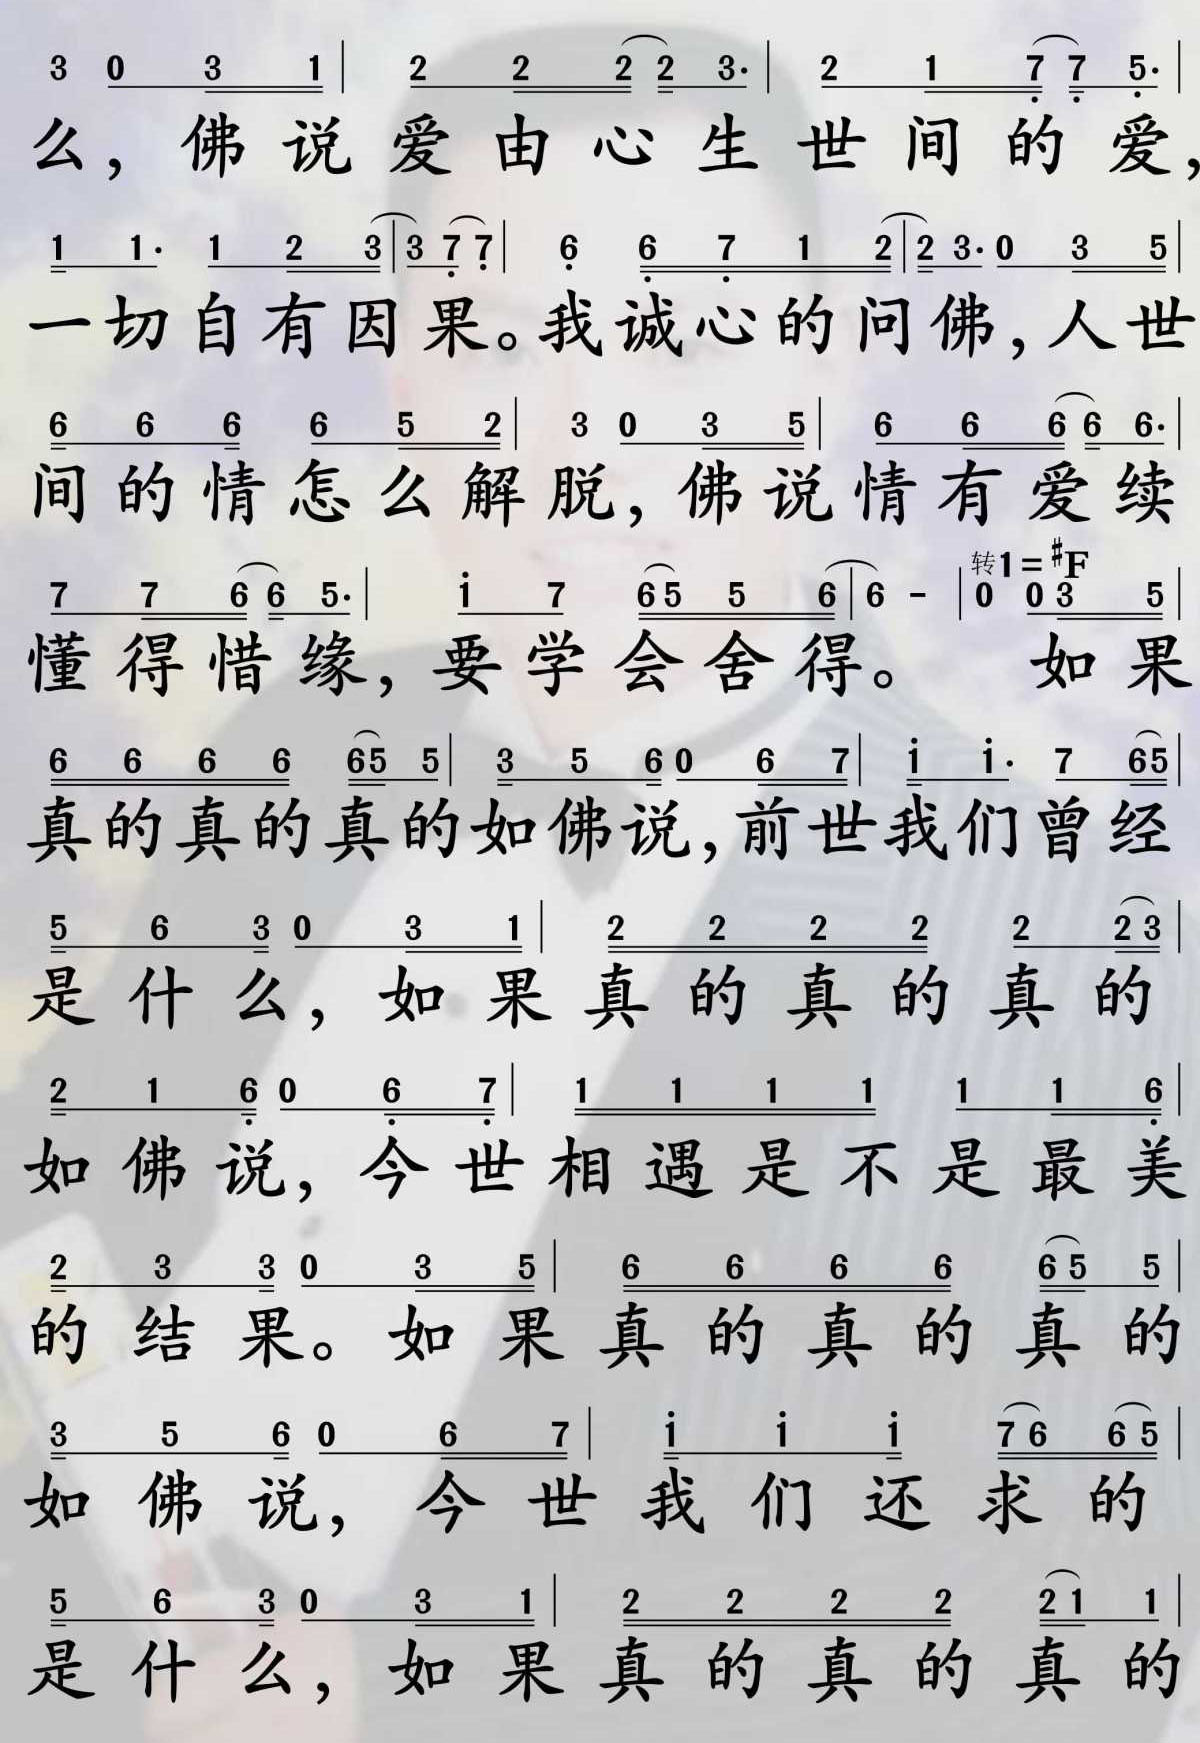 3 0 3 1 | 2 2 2 2 3· | 2 1 7 7 5· |
么，佛说爱由心生世间的爱，
1 1· 1 2 3 | 3 7 7 | 6 6 7 1 2 | 2 3· 0 3 5 |
一切自有因果。我诚心的问佛，人世
6 6 6 6 5 2 | 3 0 3 5 | 6 6 6 6 6· |
间的情怎么解脱，佛说情有爱续
转1=♯F
7 7 6 6 5· | i 7 6 5 5 6 | 6 - | 0 0 3 5 |
懂得惜缘，要学会舍得。如果
6 6 6 6 6 5 5 | 3 5 6 0 6 7 | i i· 7 6 5 |
真的真的真的如佛说，前世我们曾经
5 6 3 0 3 1 | 2 2 2 2 2 2 3 |
是什么，如果真的真的真的
2 1 6 0 6 7 | 1 1 1 1 1 1 6 |
如佛说，今世相遇是不是最美
2 3 3 0 3 5 | 6 6 6 6 6 5 5 |
的结果。如果真的真的真的
3 5 6 0 6 7 | i i i 7 6 6 5 |
如佛说，今世我们还求的
5 6 3 0 3 1 | 2 2 2 2 2 1 1 |
是什么，如果真的真的真的